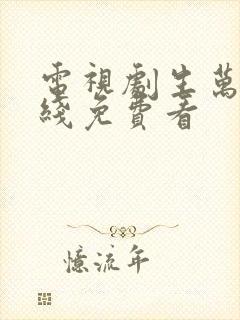 電視劇生萬
綫免費看
憶流年